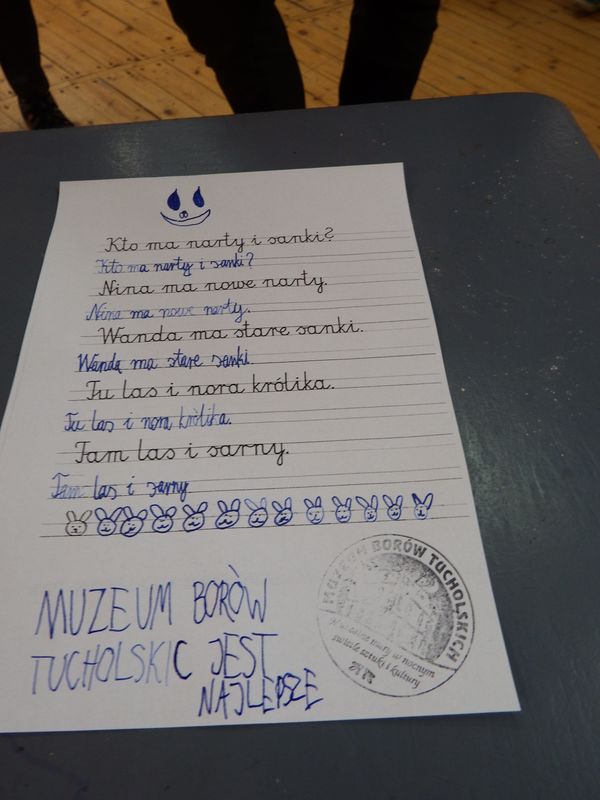 Kto ma narty i sanki?
Kto ma narty i sanki?
Nina ma nowe narty.
Nina ma nowe narty.
Wanda ma stare sanki.
Wanda ma stare sanki.
Tu las i nora królika.
Tu las i nora królika.
Tam las i sarny.
Tam las i sarny
MUZEUM BORÓW
TUCHOLSKIC JEST
NAJLEPSZE
MUZEUM BORÓW TUCHOLSKICH
mury w nocnym
świecie sztuki i kultury